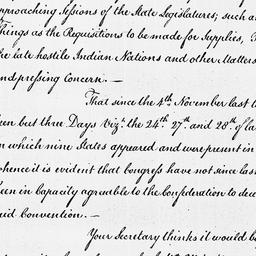 pproaching Sessions of the State Legislatures; such a
Things as the Requisitions to be made for Supplies,
the late hostile Indian Nations and other Matters
and pressing Concern. —
That since the 4th November last t
een but three Days Vizt. the 24th. 27th. and 28th of la
n which nine States appeared and were present in
whence it is evident that Congress have not since last
been in capacity agreable to the Confederation to dec
said Convention. —
Your Secretary thinks it would b